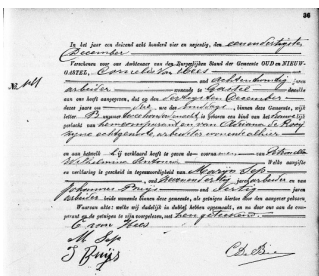 36
In het jaar een duizend acht honderd vier en negentig, den eenendertigsten
December
Verschenen voor ons Ambtenaar van den Burgerlijken Stand der Gemeente OUD en NIEUW-
GASTEL, Cornelis van Hees
oud achtentwintig jaren
arbeider wonende te Gastel dewelke
aan ons heeft aangegeven, dat op den dertigsten December
dezer jaars ten ure des middags binnen deze Gemeente, wijk
letter B nummer een kind van het
geslacht is geboren van hem comparant en van Adriana de
zijne echtgenoote arbeidster wonende alhier
en aan hetwelk hij verklaard heeft te geven de voornamen van Petronella
Wilhelmina Antonia Welke aangifte
en verklaring is geschied in tegenwoordigheid van Marijn Sep
oud jaren arbeider en van
Johannes Buijs oud dertig jaren
arbeider, beide wonende binnen deze gemeente, als getuigen hiertoe door den aangever gekozen.
Waarvan akte welke wij dadelijk in dubbel hebben opgemaakt, en na door ons aan de com-
parant en de getuigen te zijn voorgelezen, met hen geteekend.
C van Hees
M Sep
J Buijs